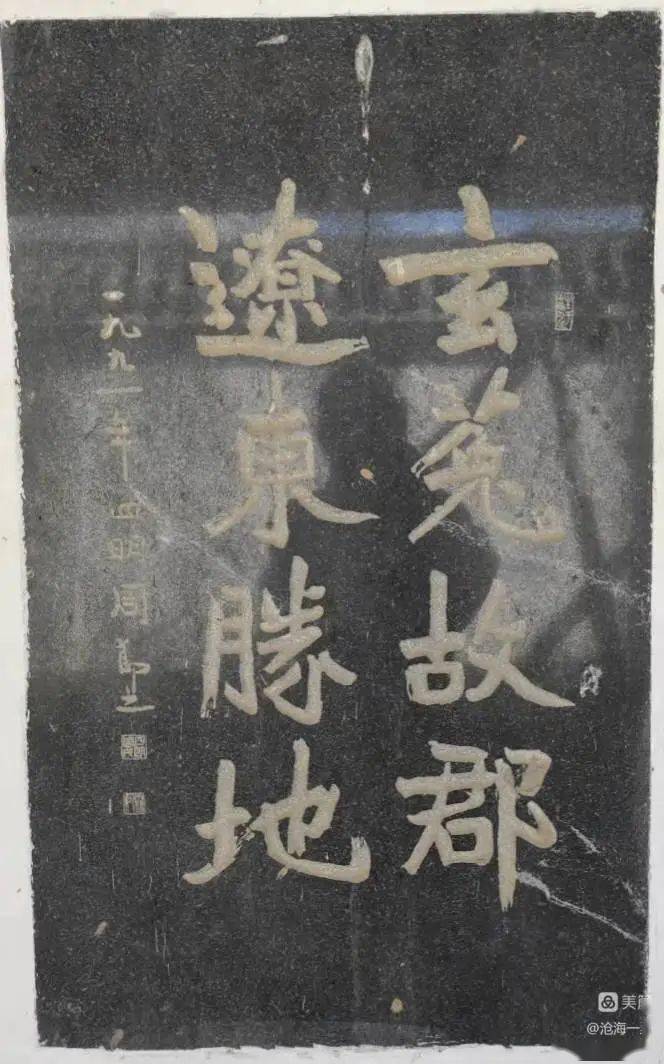 玄菟故郡
遼東勝地
一九九一年四明周節之
美
@沧海一